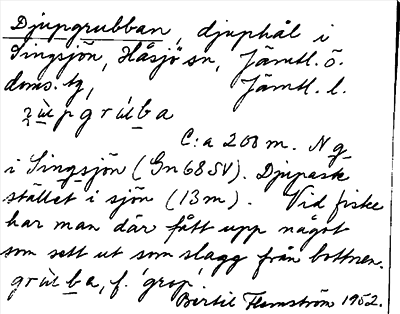 Djupgrubban, djuphål i
Singsjön, Håsjö sn, Jämtl. ö.
doms. tg, Jämtl. l.
C:a 200 m. N g
i Singsjön (Gn 68 SV). Djupaste
stället i sjön (13 m). Vid fiske
har man där fått upp något
som sett ut som slagg från bottnen.
grùba, f. 'grop'.
Bertil Flemström 1952.